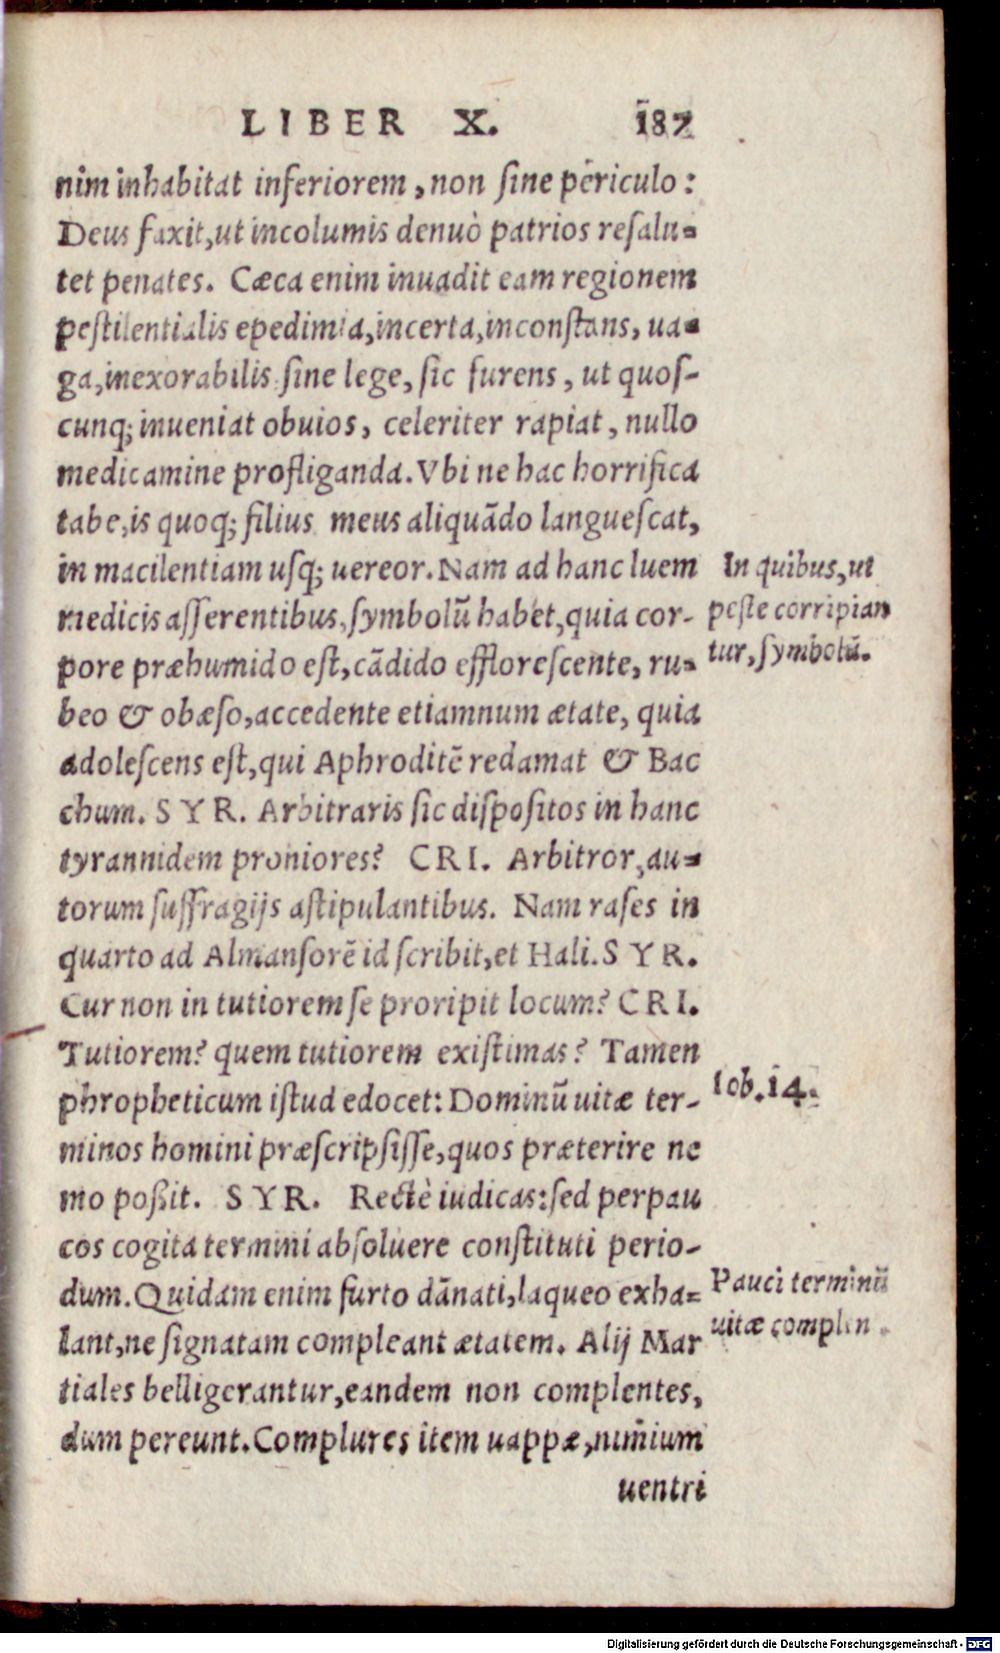 LIBER X. 187
nim inhabitat inferiorem, non ſine periculo:
Deus faxit, ut incolumis denuò patrios reſalu-
tet penates. Cæca enim inuadit eam regionem
peſtilentialis epedimia, incerta, inconſtans, ua-
ga, inexorabilis ſine lege, ſic furens, ut quoſ-
cunq; inueniat obuios, celeriter rapiat, nullo
medicamine profliganda. Vbi ne hac horrifica
tabe, is quoq; filius meus aliquādo langueſcat,
in macilentiam uſq; uereor. Nam ad hanc luem
medicis aſſerentibus, ſymbolū habet, quia cor-
pore præhumido eſt, cādido effloreſcente, ru-
beo & obæſo, accedente etiamnum ætate, quia
adoleſcens eſt, qui Aphroditē redamat & Bac
chum. SYR. Arbitraris ſic diſpoſitos in hanc
tyrannidem proniores? CRI. Arbitror, au-
torum ſuffragijs aſtipulantibus. Nam raſes in
quarto ad Almanſorē id ſcribit, et Hali. SYR.
Cur non in tutiorem ſe proripit locum? CRI.
Tutiorem? quem tutiorem exiſtimas? Tamen
phropheticum iſtud edocet: Dominū uitæ ter-
minos homini præſcripſiſſe, quos præterire ne
mo poßit. SYR. Rectè iudicas: ſed perpau
cos cogita termini abſoluere conſtituti perio-
dum. Quidam enim furto dānati, laqueo exha-
lant, ne ſignatam compleant ætatem. Alij Mar
tiales belligerantur, eandem non complentes,
dum pereunt. Complures item uappæ, nimium
uentri
In quibus, ut
peſte corripian
tur, ſymbolū.
Iob. 14.
Pauci terminū
uitæ complen
Digitalisierung gefördert durch die Deutsche Forschungsgemeinschaft - DFG